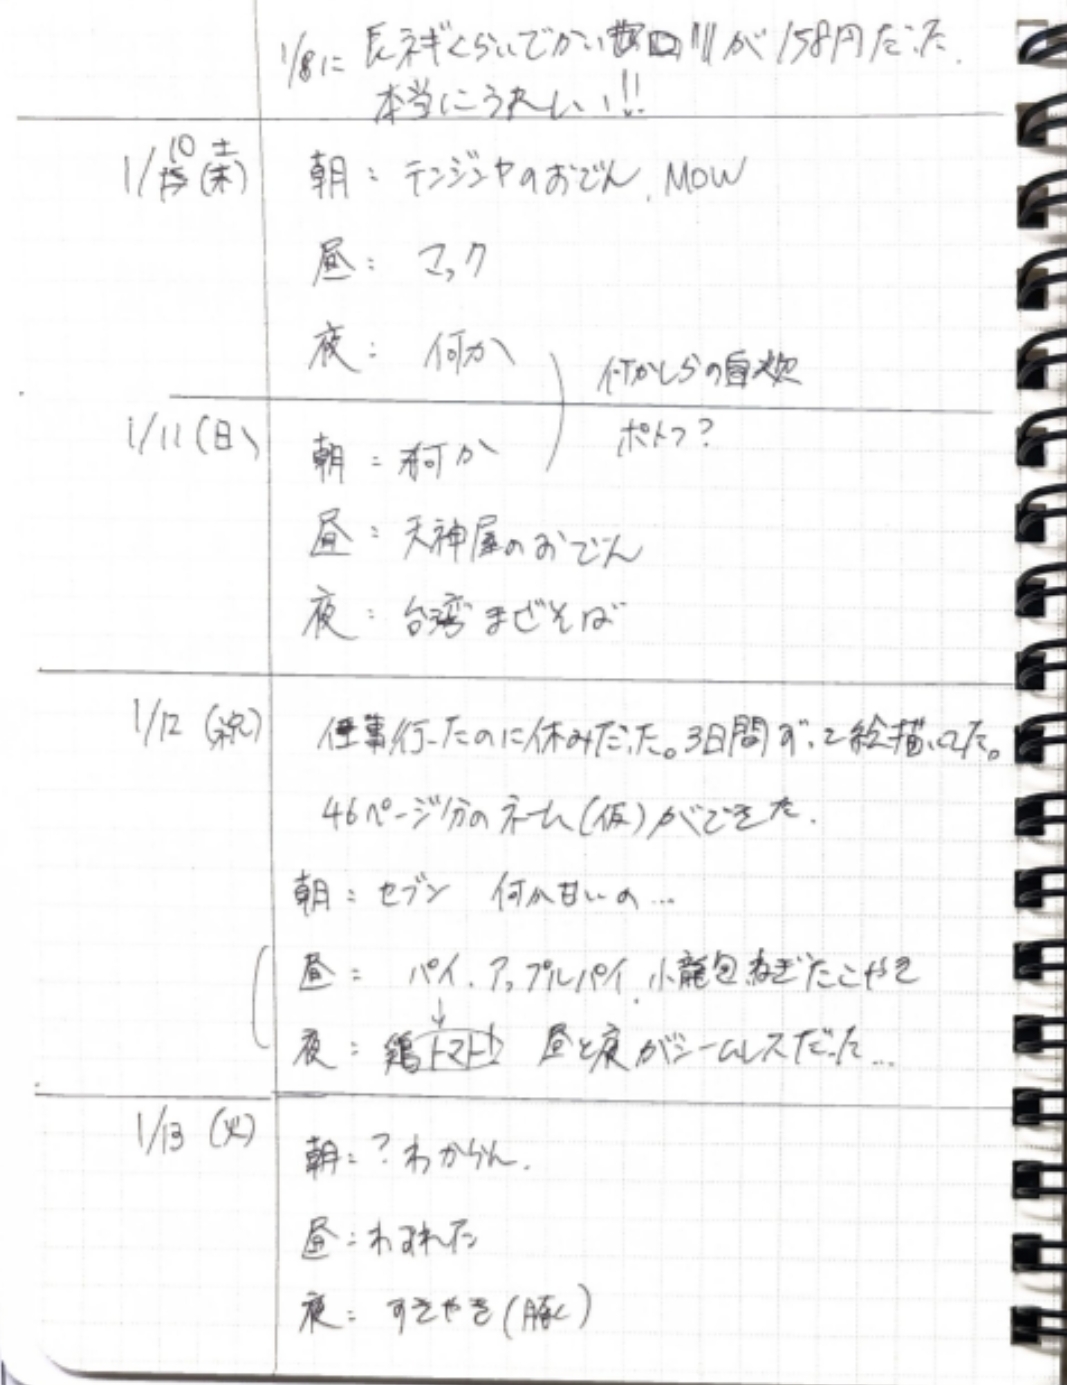 1/8に 長ネギくらいでかい が158円だった.
本当にうれしい!!
1/10 (土) 朝: テンジンヤのおでん, MOW
昼: マック
夜: 何か
何かしらの自炊
ポトフ?
1/11(日) 朝: 何か
昼: 天神屋のおでん
夜: 台湾まぜそば
1/12 仕事行ったのに休みだった。3日間ずっと絵描いてた。
46ページ分のネーム(仮)ができた.
朝: セブン 何か甘いの…
昼: パイ.アップルパイ.小龍包 ねぎたこやき
夜: 鶏トマト 昼と夜がシームレスだった…
1/13 (火) 朝:?わからん.
昼:わすれた
夜: すきやき(豚)